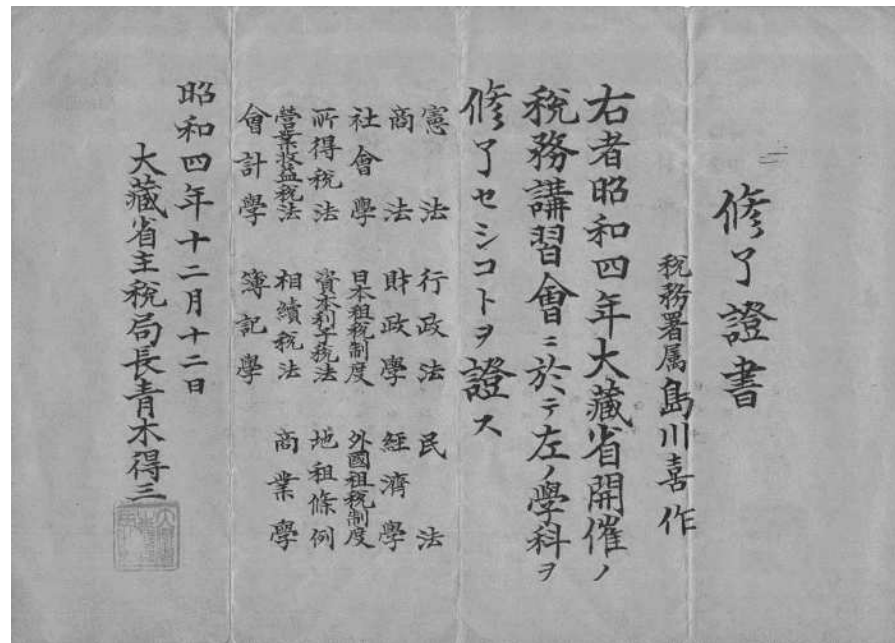 修了證書
税務署属島川喜作
右者昭和四年大藏省開催ノ
税務講習會ニ於テ左ノ學科ヲ
修了セシコトヲ證ス
憲法 行政法 民法
商法 財政學 經濟學
社會學 日本租税制度 外國租税制度
所得税法 資本利子税法 地租條例
營業收益税法 相續税法 商業學
會計學 簿記學
昭和四年十二月十二日
大藏省主税局長青木得三